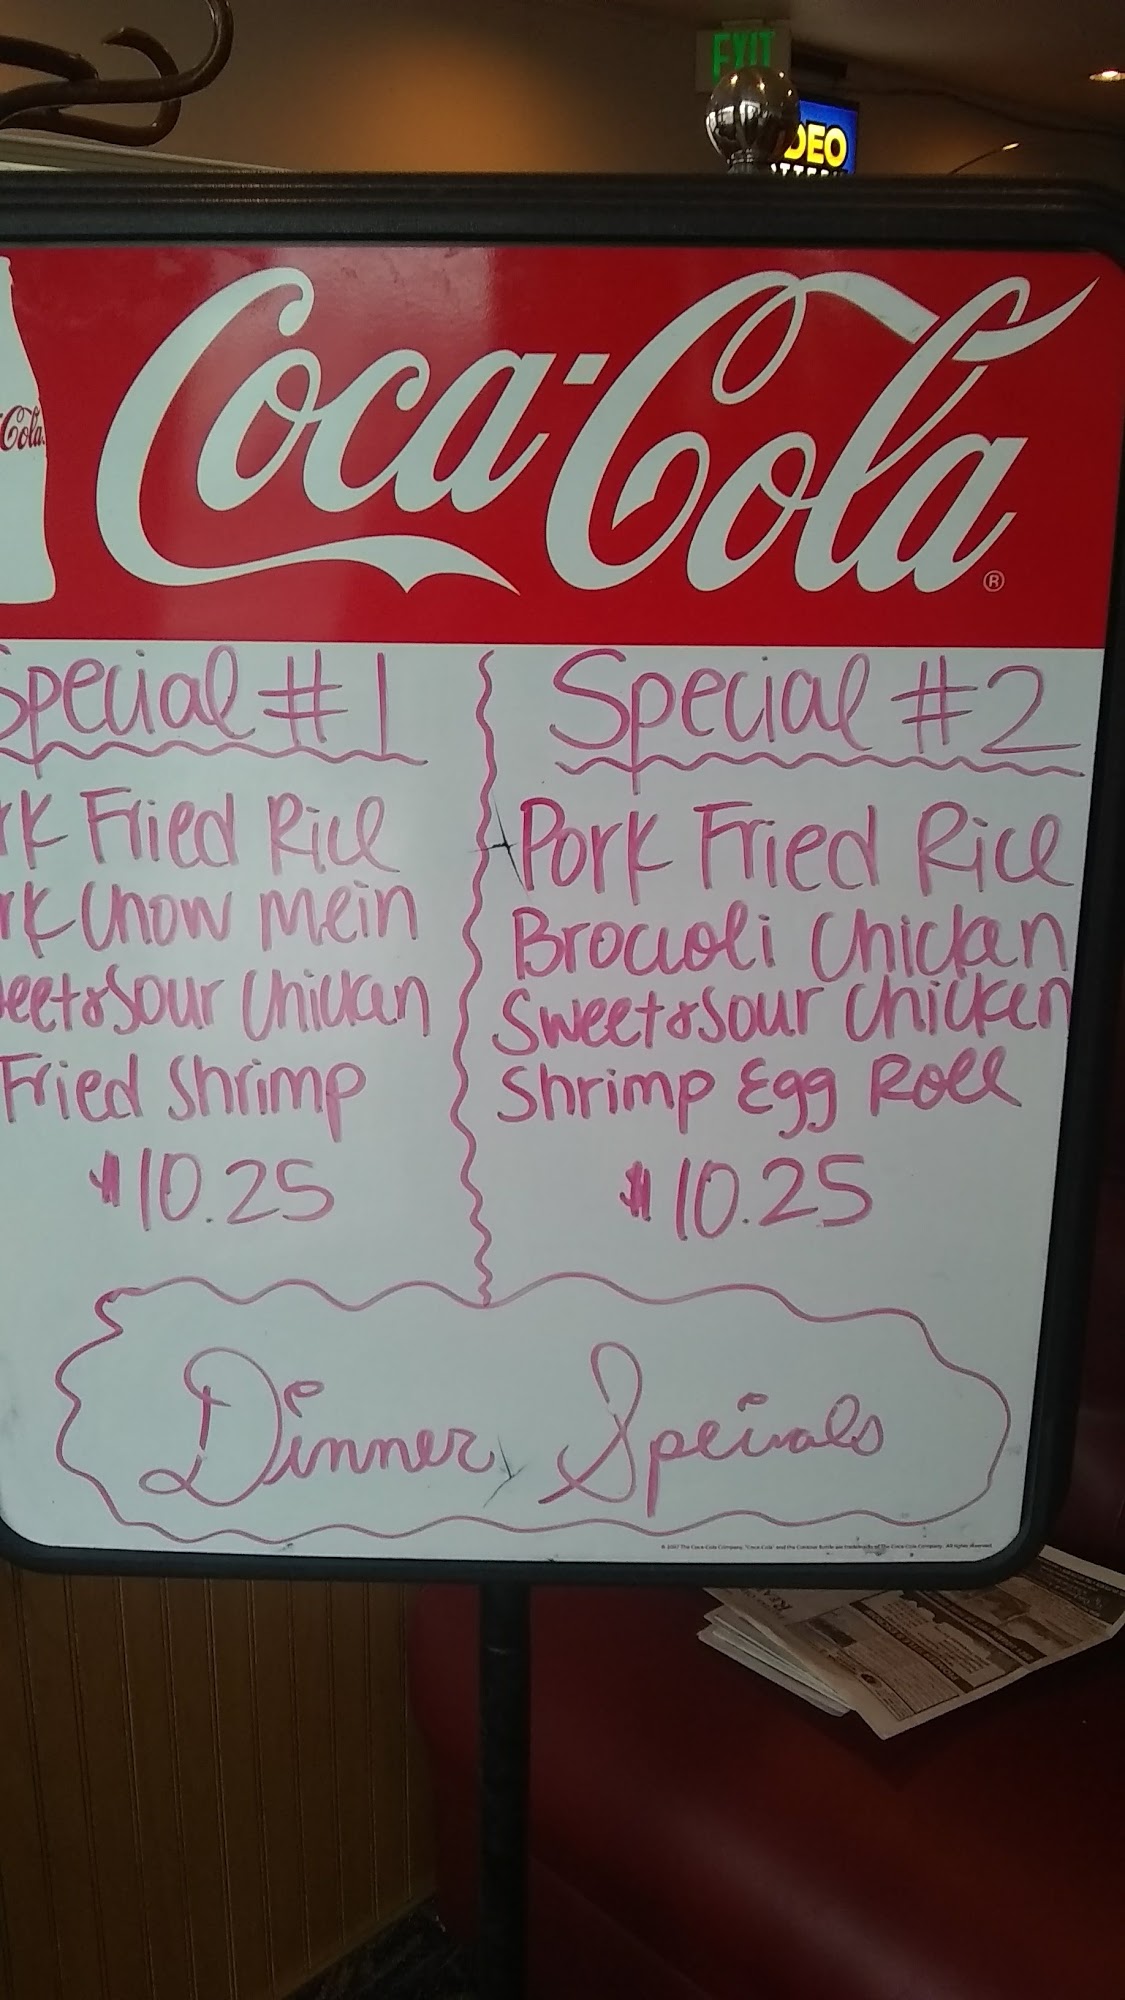 EXIT
DEO
Coca-Cola®
Cola
Special #1
rk Fried Rice
rk Chow Mein
eet&Sour Chicken
Fried Shrimp
$10.25
Special #2
Pork Fried Rice
Broccoli Chicken
Sweet&Sour Chicken
Shrimp Egg Roll
$10.25
Dinner Specials
© 2007 The Coca-Cola Company. "Coca-Cola" and the Contour Bottle are trademarks of The Coca-Cola Company. All rights reserved.